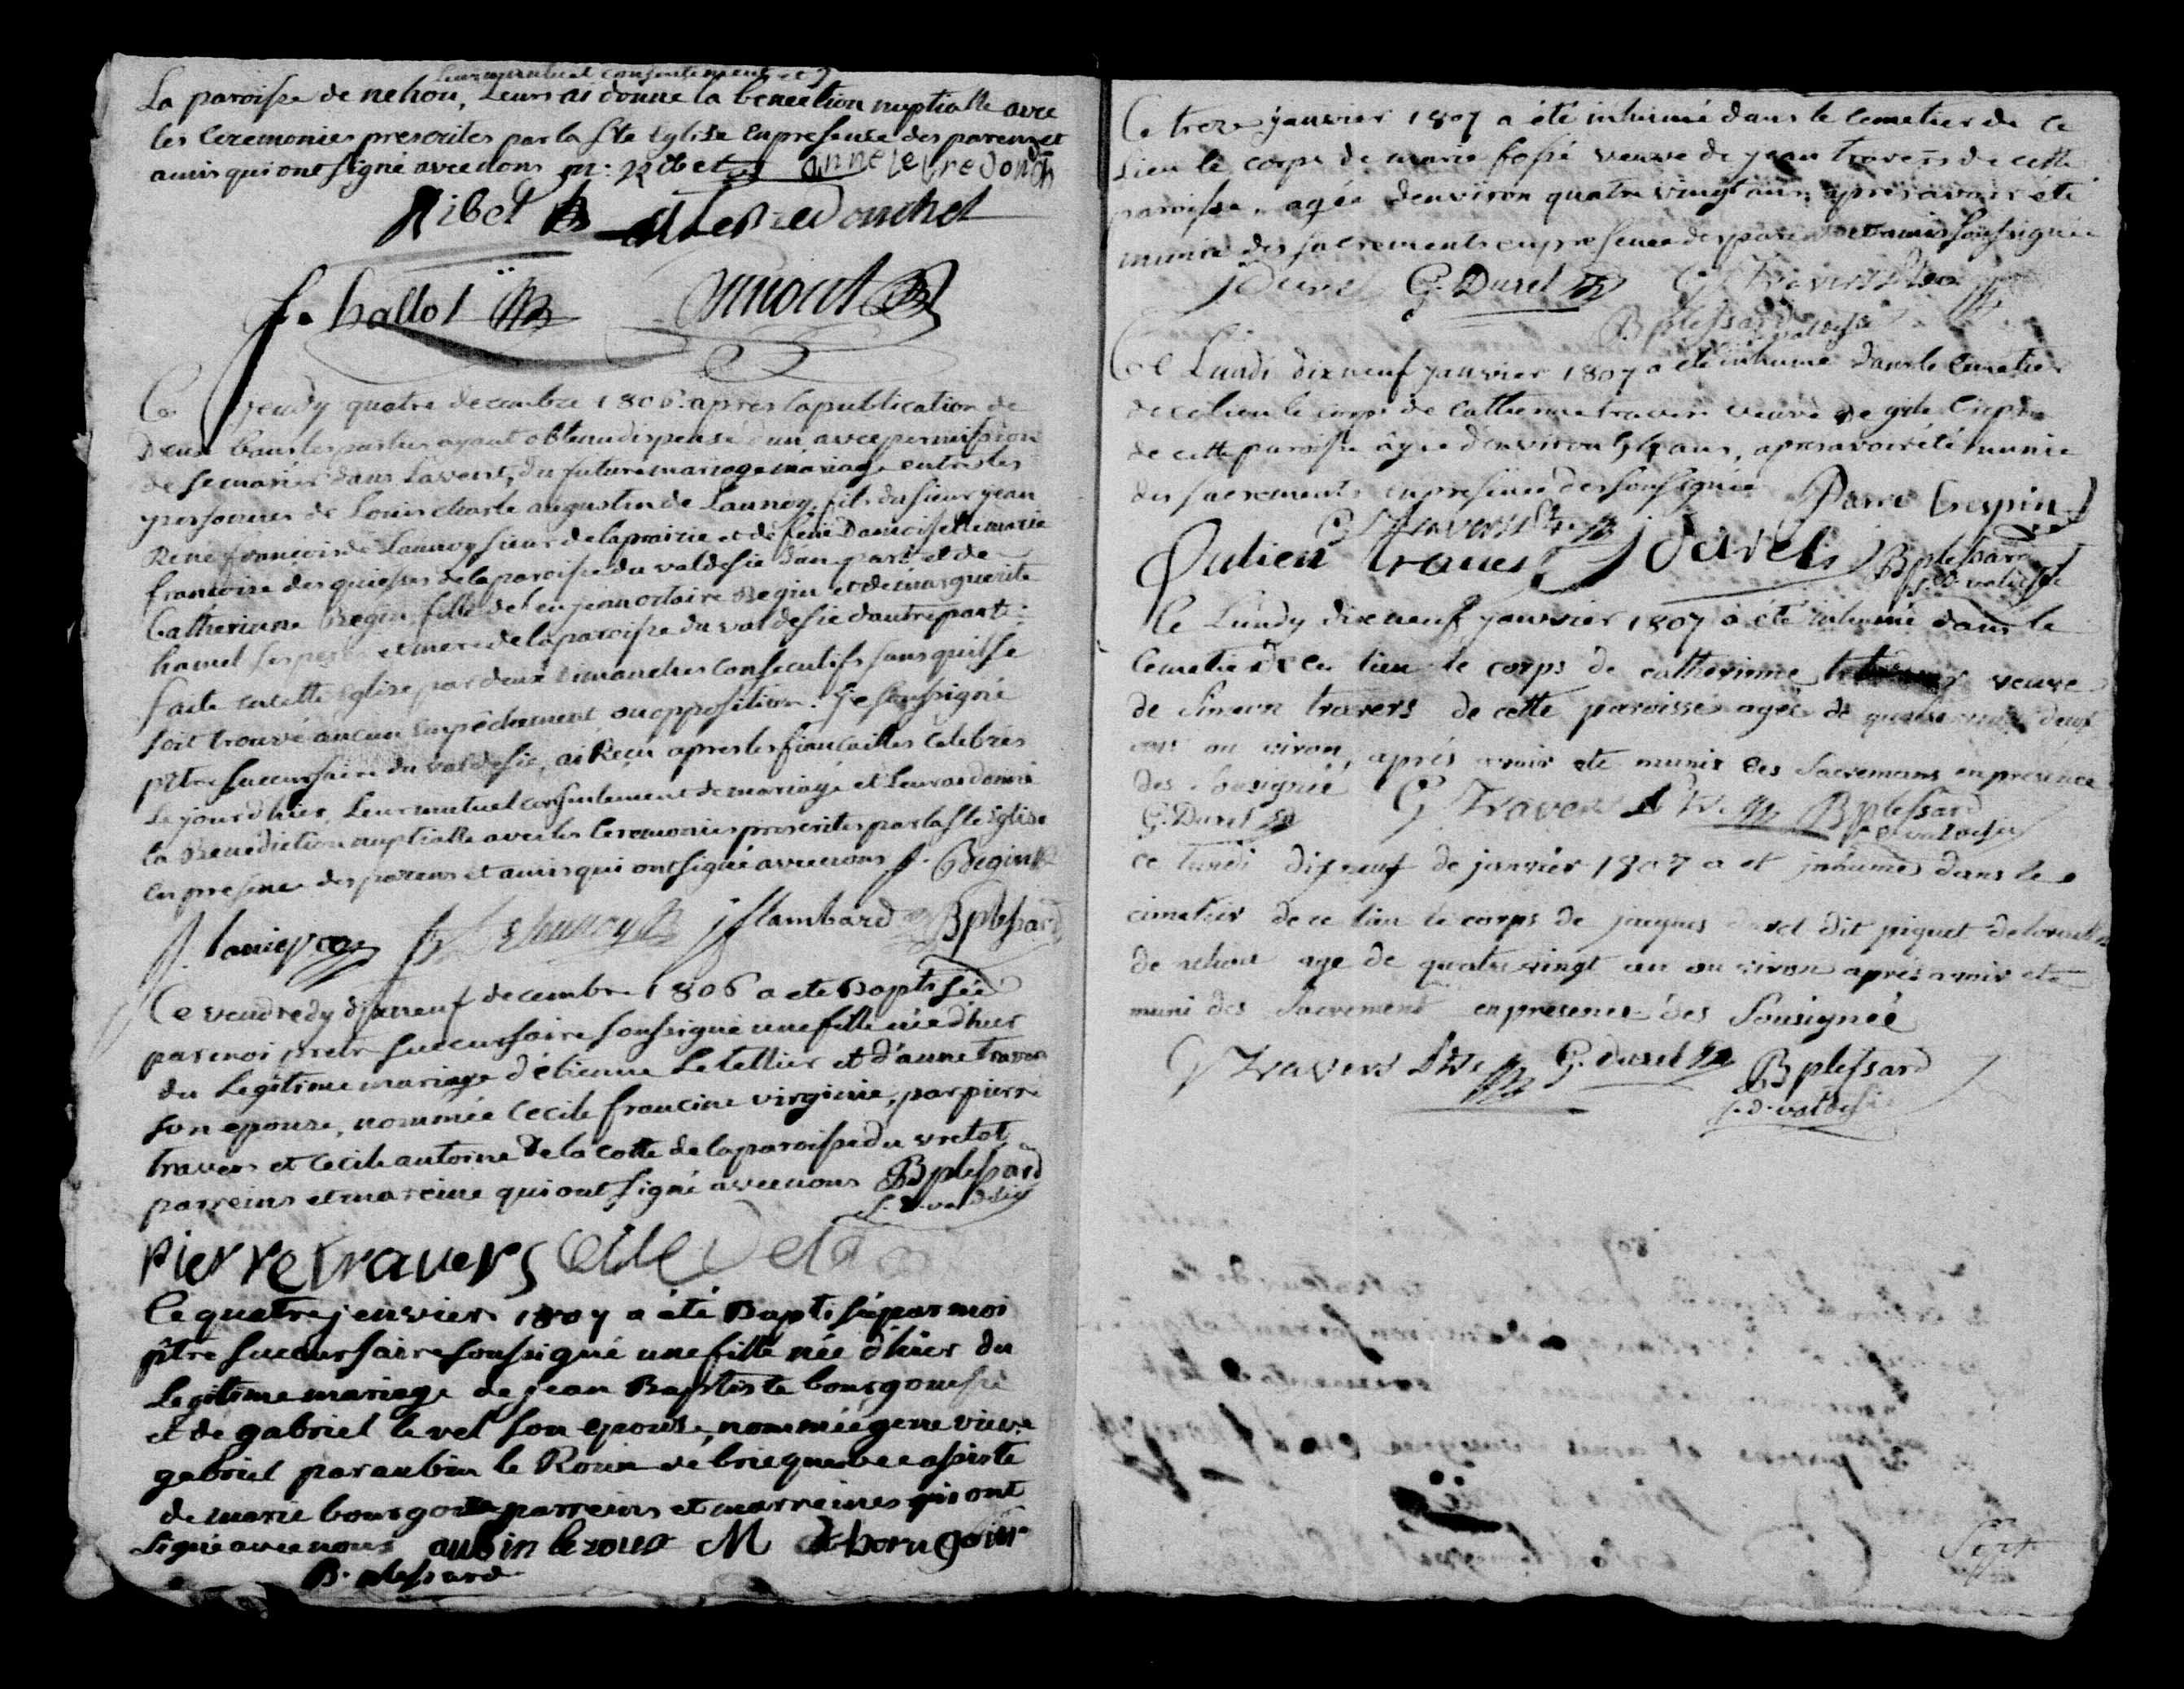 leur mutuel consentement et
La paroisse de nehou, Leurs ai donné la benection nuptialle avec
les Ceremonies prescrites par la Ste Eglise en presence des parens et
amis qui ont signé avec nous m: Ribet anne le bredonch
Ribet A le Bredonchel
f. hallot Simon
Ce jeudy quatre decembre 1806 apres la publication de
Deux bans les parties ayant obtenu dispense d'un avec permission
de se marier dans Lavent, du future mariage mariage entre les
personnes de Louis charle augustin de Launoy, fils du sieur jean
René françois de Launoy sieur de la prairie et de feue Damoiselle marie
francoise des quiesses de la paroisse du valdesie d'une part et de
Catherinne Begin fille de feu jean ortaire Begin et de marguerite
hamel ses pere et mere de la paroisse du valdesie d'autre part:
faite en cette Eglise par deux dimanches consecutifs sans qu'il se
soit trouvé aucun empêchement ou opposition. Je soussigné
ptre succursaire du valdesie, ai Reçu apres les fiançailles Celebrés
Le jour d'hier, Leur mutuel consentement de mariage et Leur ai donné
la Benediction nuptialle avec les Ceremonies prescrites par la Ste Eglise
en presence des parens et amis qui ont signé avec nous f. Begin
jf lambard B plessard
Ce vendredy dixneuf decembre 1806 a ete Baptisée
par moi pretre succursaire soussigné une fille née d'hier
du Legitime mariage d'étienne Letellier et d'anne travers
son epouse, nommée Cecile francine virginie, par pierre
travers et Cecile antoine de la cotte de la paroisse du vretot
parreins et mareine qui ont signé avec nous B plessard
s. d. valdesie
Pierre travers Cecile Dela
Ce quatre jenvier 1807 a été Baptisé par moi
ptre succursaire soussigné une fille née d'hier du
Legitime mariage de jean Baptiste bourgouesse
et de gabriel level son epouse, nommée genevieve
gabriel par aubin le Roux de bricquebec assisté
de marie bourgoise parreins et marreines qui ont
signé avec nous aubin le roux M bourgoise
B. plessard
Ce treze janvier 1807 a été inhumé dans le cemetier de ce
Lieu le corps de marie fossé veuve de jean travers de cette
paroisse, agée denviron quatre vingt ans, apres avoir été
munie des sacrements en presence des parens et amis soussignés
j Durel G. Durel G Travers ptre
B plessard
s. d. valdesie
Ce Lundi dixneuf janvier 1807 a été inhumé dans le Cemetier
de ce lieu le corps de Catherinne travers veuve de gile Crepin
de cette paroisse âgée d'environ ans, apres avoir été munie
des sacrements en presence des soussignés Pierre Crespin
G Travers ptre
Julien travers j durel B plessard
s. d. valdesie
Ce Lundy dixneuf janvier 1807 a été inhumé dans le
Cemetier de ce lieu le corps de catherinne veuve
de Simeon travers de cette paroisse agée de quatre vingt deux
ans ou viron, aprés avoir ete munis des Sacremans en presence
des sousignié G Travers Ptre B plessard
G. Durel s d valdesie
ce lundi dixneuf de janvier 1807 a et inhumés dans le
cimetier de ce lieu le corps de jacques durel dit piquet
de nehou age de quatre vingt an ou viron aprés avoir eté
muni des Sacrement en presence des Sousigneé
G Travers Ptre G. durel B plessard
s. d. valdesie